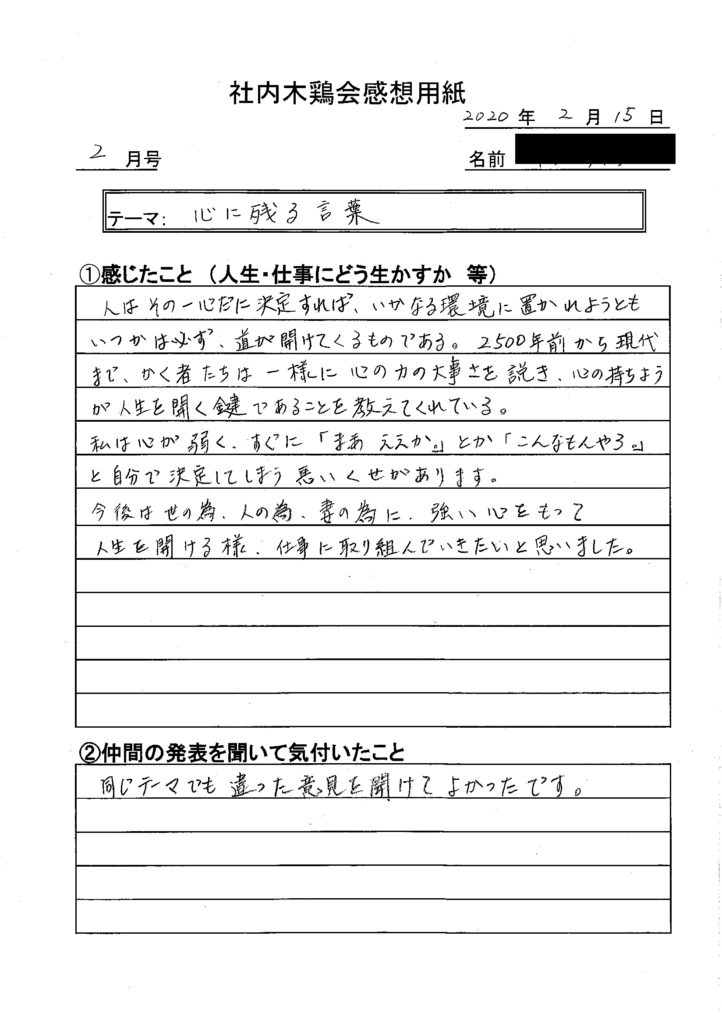 社内木鶏会感想用紙
2020 年 2 月 15 日
2 月号
名前
テーマ: 心に残る言葉
①感じたこと (人生・仕事にどう生かすか 等)
人はその一心だに決定すれば、いかなる環境に置かれようとも
いつかは必ず、道が開けてくるものである。2500年前から現代
まで、かく者たちは一様に心の力の大事さを説き、心の持ちよう
が人生を開く鍵であることを教えてくれている。
私は心が弱く、すぐに「まあ ええか。」とか「こんなもんやろ。」
と自分で決定してしまう悪いくせがあります。
今後は世の為、人の為、妻の為に、強い心をもって
人生を開ける様、仕事に取り組んでいきたいと思いました。
②仲間の発表を聞いて気付いたこと
同じテーマでも違った意見を聞けてよかったです。